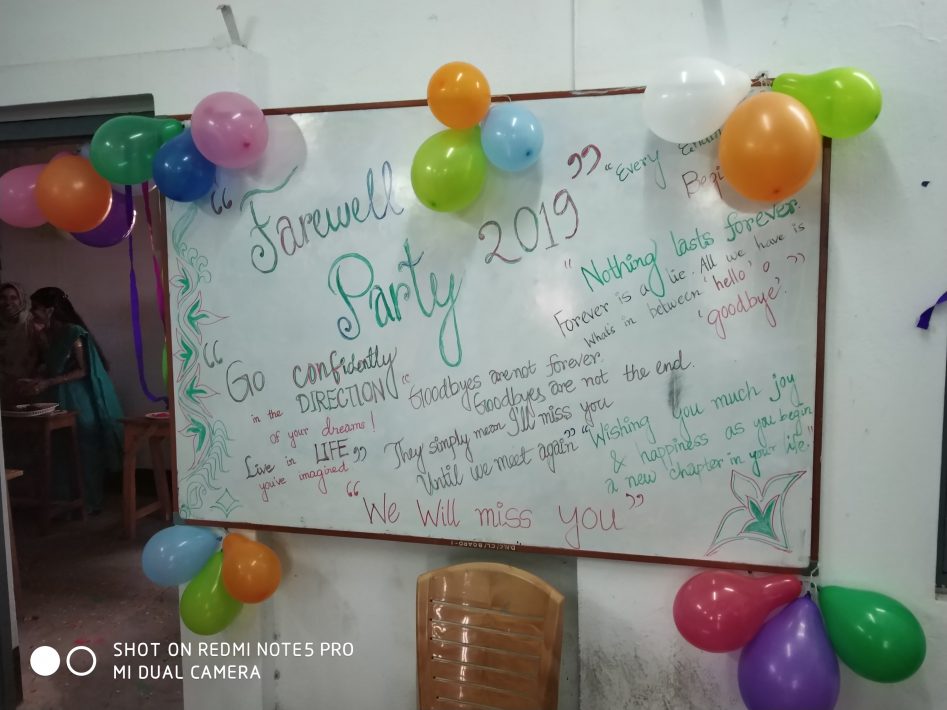 “Farewell
Party 2019”
“Every
Begi
“Nothing lasts forever.
Forever is a lie. All we have is
whats in between ‘hello’ & ”
‘goodbye’.
“Go confidently
in the DIRECTION
of your dreams!
Live in LIFE
you've imagined”
“Goodbyes are not forever.
Goodbyes are not the end.
They simply mean I'll miss you
Until we meet again”
“Wishing you much joy
& happiness as you begin
a new chapter in your life.”
“We Will miss you”
SHOT ON REDMI NOTE5 PRO
MI DUAL CAMERA